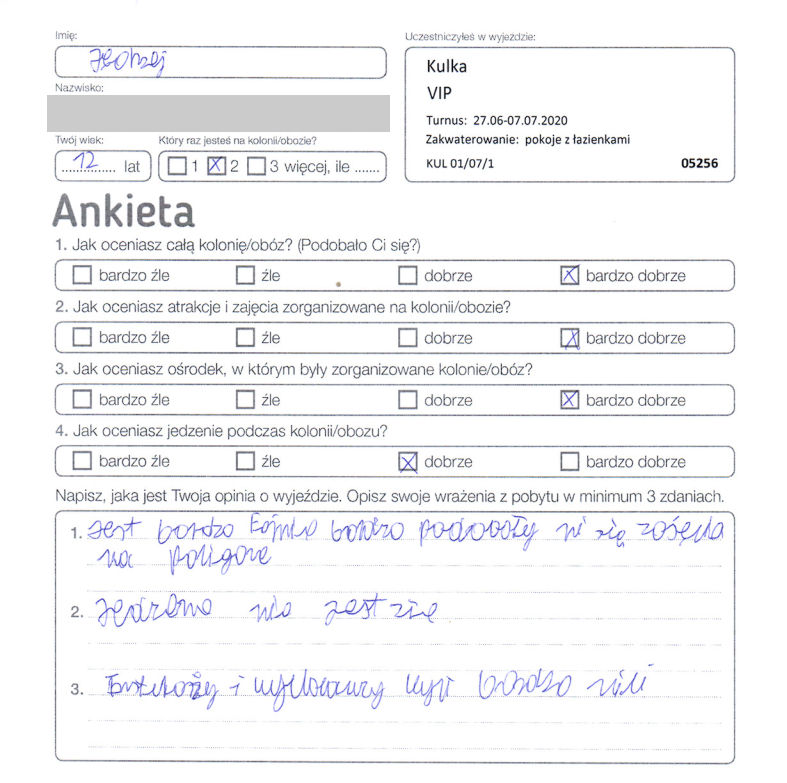 Imię:
Nazwisko:
Twój wiek:
12 lat
Który raz jesteś na kolonii/obozie?
1 X 2 3 więcej, ile .......
Uczestniczyłeś w wyjeździe:
Kulka
VIP
Turnus: 27.06-07.07.2020
Zakwaterowanie: pokoje z łazienkami
KUL 01/07/1 05256
Ankieta
1. Jak oceniasz całą kolonię/obóz? (Podobało Ci się?)
bardzo źle źle dobrze X bardzo dobrze
2. Jak oceniasz atrakcje i zajęcia zorganizowane na kolonii/obozie?
bardzo źle źle dobrze X bardzo dobrze
3. Jak oceniasz ośrodek, w którym były zorganizowane kolonie/obóz?
bardzo źle źle dobrze X bardzo dobrze
4. Jak oceniasz jedzenie podczas kolonii/obozu?
bardzo źle źle X dobrze bardzo dobrze
Napisz, jaka jest Twoja opinia o wyjeździe. Opisz swoje wrażenia z pobytu w minimum 3 zdaniach.
1. Jest bardzo bardzo podobały się
na
2. nie jest
3. i bardzo